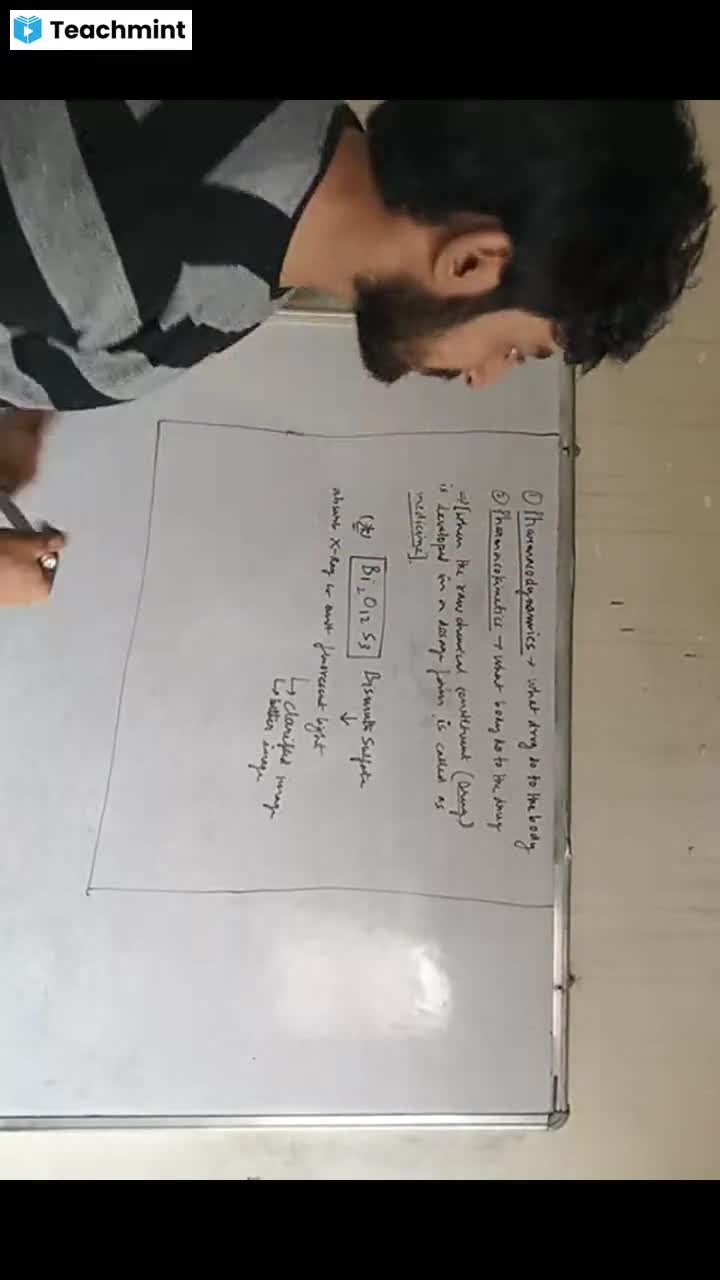 Teachmint
① Pharmacodynamics → what drug do to the body
② Pharmacokinetics → what body do to the drug
→ [When the raw chemical constituent (Drug)
is developed in a dosage form is called as
medicine].
Bi2O12S3 Bismuth Sulfate
↓
absorb X-ray & emit fluorescent light
↳ clarified image
↳ better image